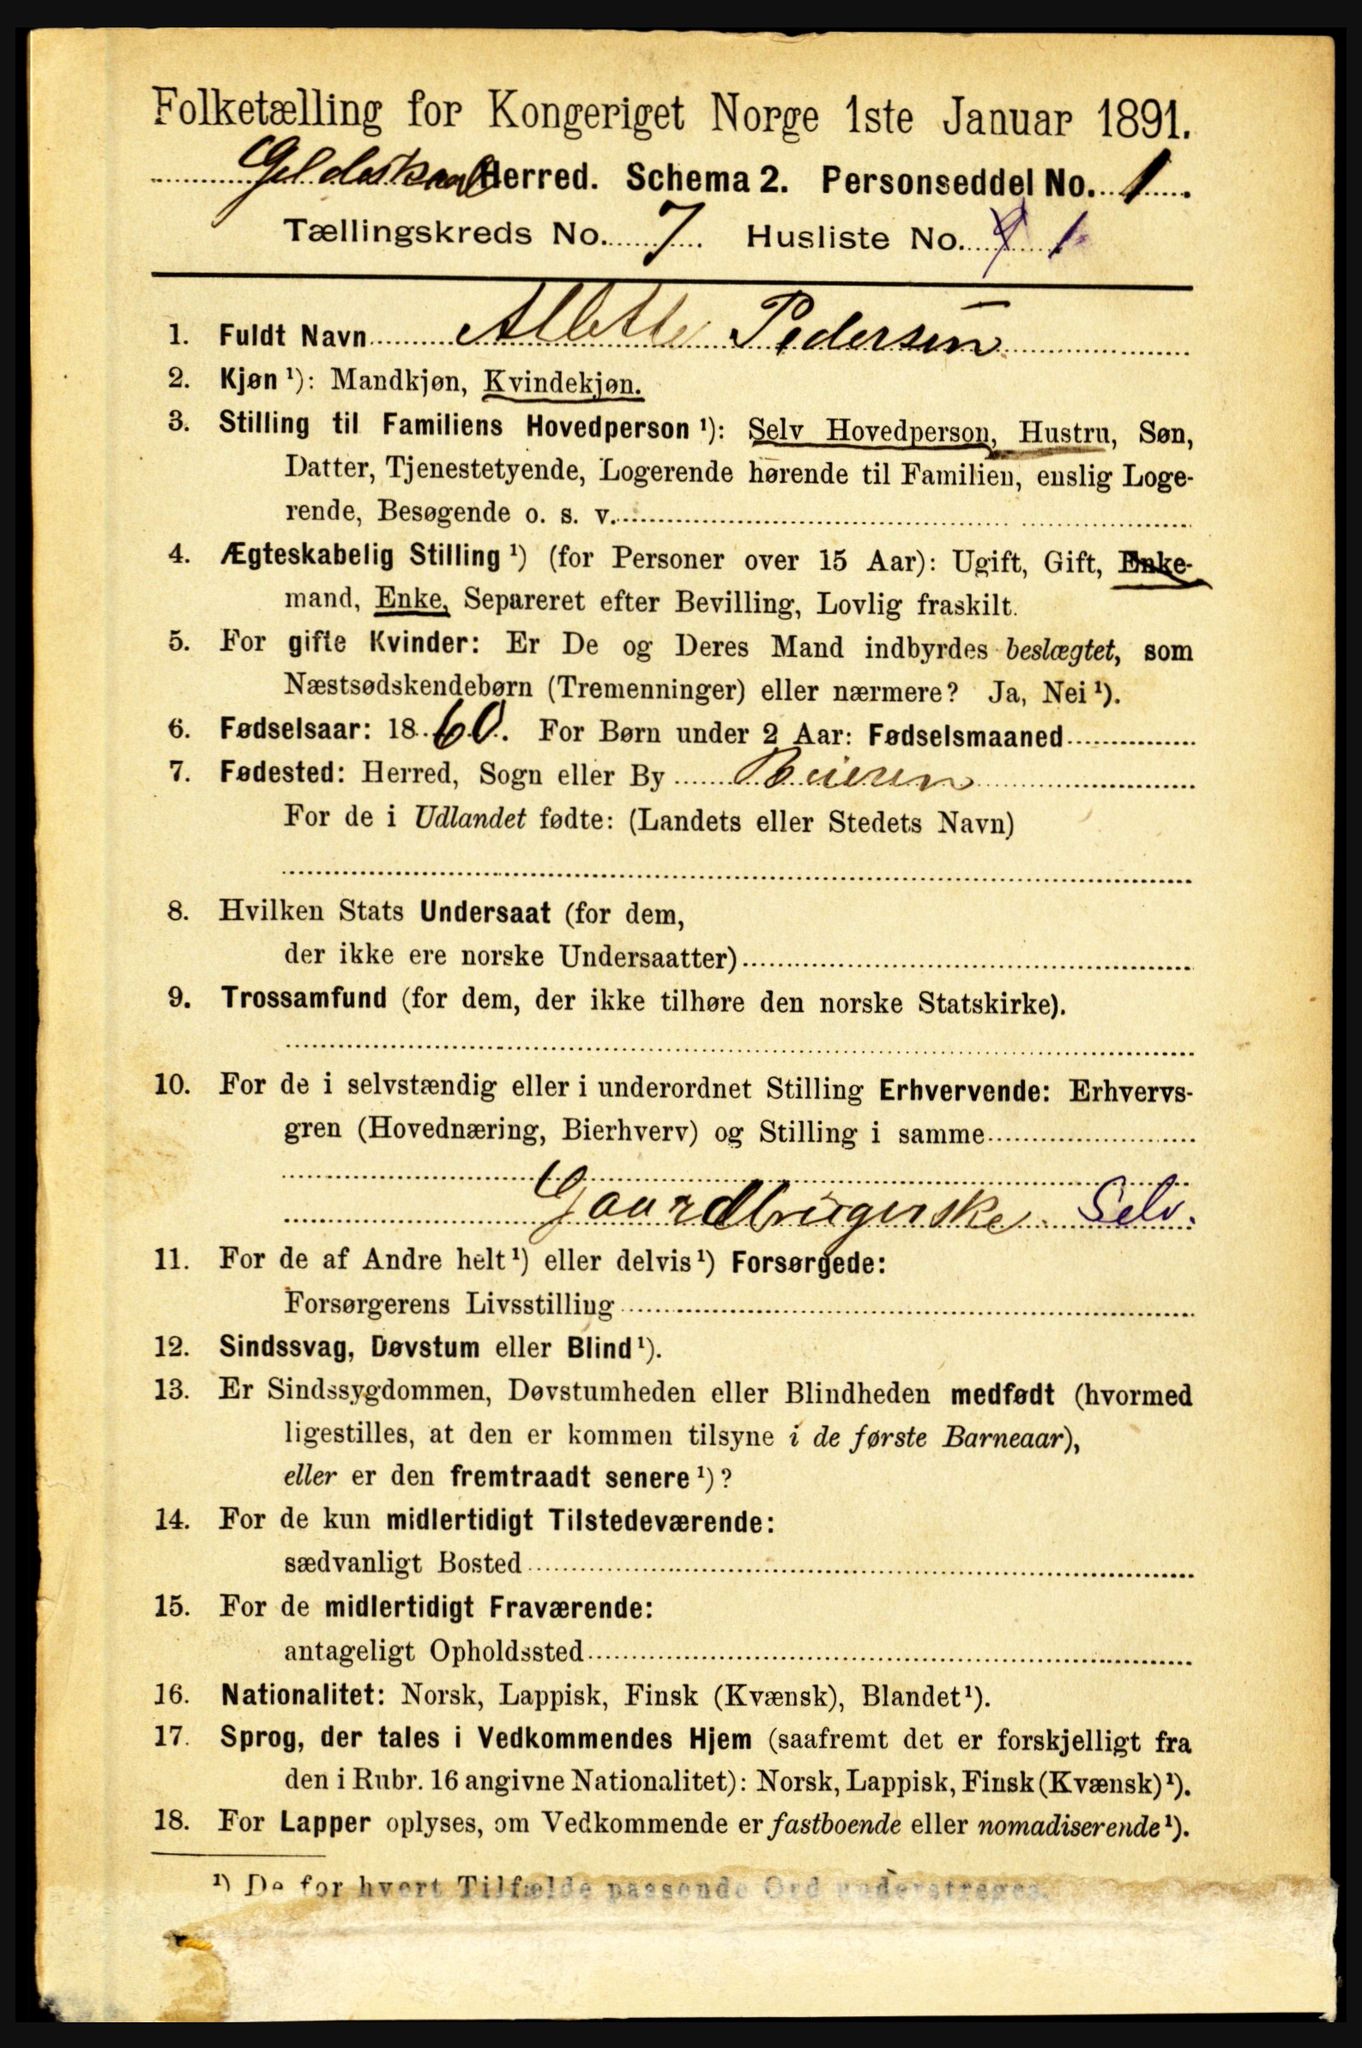 Folketælling for Kongeriget Norge 1ste Januar 1891.
Gildeskaal Herred. Schema 2. Personseddel No. 1.
Tællingskreds No. 7 Husliste No. 1
1. Fuldt Navn Albette Pedersen
2. Kjøn ¹): Mandkjøn, Kvindekjøn.
3. Stilling til Familiens Hovedperson ¹): Selv Hovedperson, Hustru, Søn,
Datter, Tjenestetyende, Logerende hørende til Familien, enslig Loge-
rende, Besøgende o. s. v.
4. Ægteskabelig Stilling ¹) (for Personer over 15 Aar): Ugift, Gift, Enke-
mand, Enke, Separeret efter Bevilling, Lovlig fraskilt.
5. For gifte Kvinder: Er De og Deres Mand indbyrdes beslægtet, som
Næstsødskendebørn (Tremenninger) eller nærmere? Ja, Nei ¹).
6. Fødselsaar: 1860. For Børn under 2 Aar: Fødselsmaaned
7. Fødested: Herred, Sogn eller By Beieren
For de i Udlandet fødte: (Landets eller Stedets Navn)
8. Hvilken Stats Undersaat (for dem,
der ikke ere norske Undersaatter)
9. Trossamfund (for dem, der ikke tilhøre den norske Statskirke).
10. For de i selvstændig eller i underordnet Stilling Erhvervende: Erhvervs-
gren (Hovednæring, Bierhverv) og Stilling i samme
Gaardbrugerske Selv.
11. For de af Andre helt ¹) eller delvis ¹) Forsørgede:
Forsørgerens Livsstilling
12. Sindssvag, Døvstum eller Blind ¹).
13. Er Sindssygdommen, Døvstumheden eller Blindheden medfødt (hvormed
ligestilles, at den er kommen tilsyne i de første Barneaar),
eller er den fremtraadt senere ¹)?
14. For de kun midlertidigt Tilstedeværende:
sædvanligt Bosted
15. For de midlertidigt Fraværende:
antageligt Opholdssted
16. Nationalitet: Norsk, Lappisk, Finsk (Kvænsk), Blandet ¹).
17. Sprog, der tales i Vedkommendes Hjem (saafremt det er forskjelligt fra
den i Rubr. 16 angivne Nationalitet): Norsk, Lappisk, Finsk (Kvænsk) ¹).
18. For Lapper oplyses, om Vedkommende er fastboende eller nomadiserende ¹).
¹) De for hvert Tilfælde passende Ord understreges.